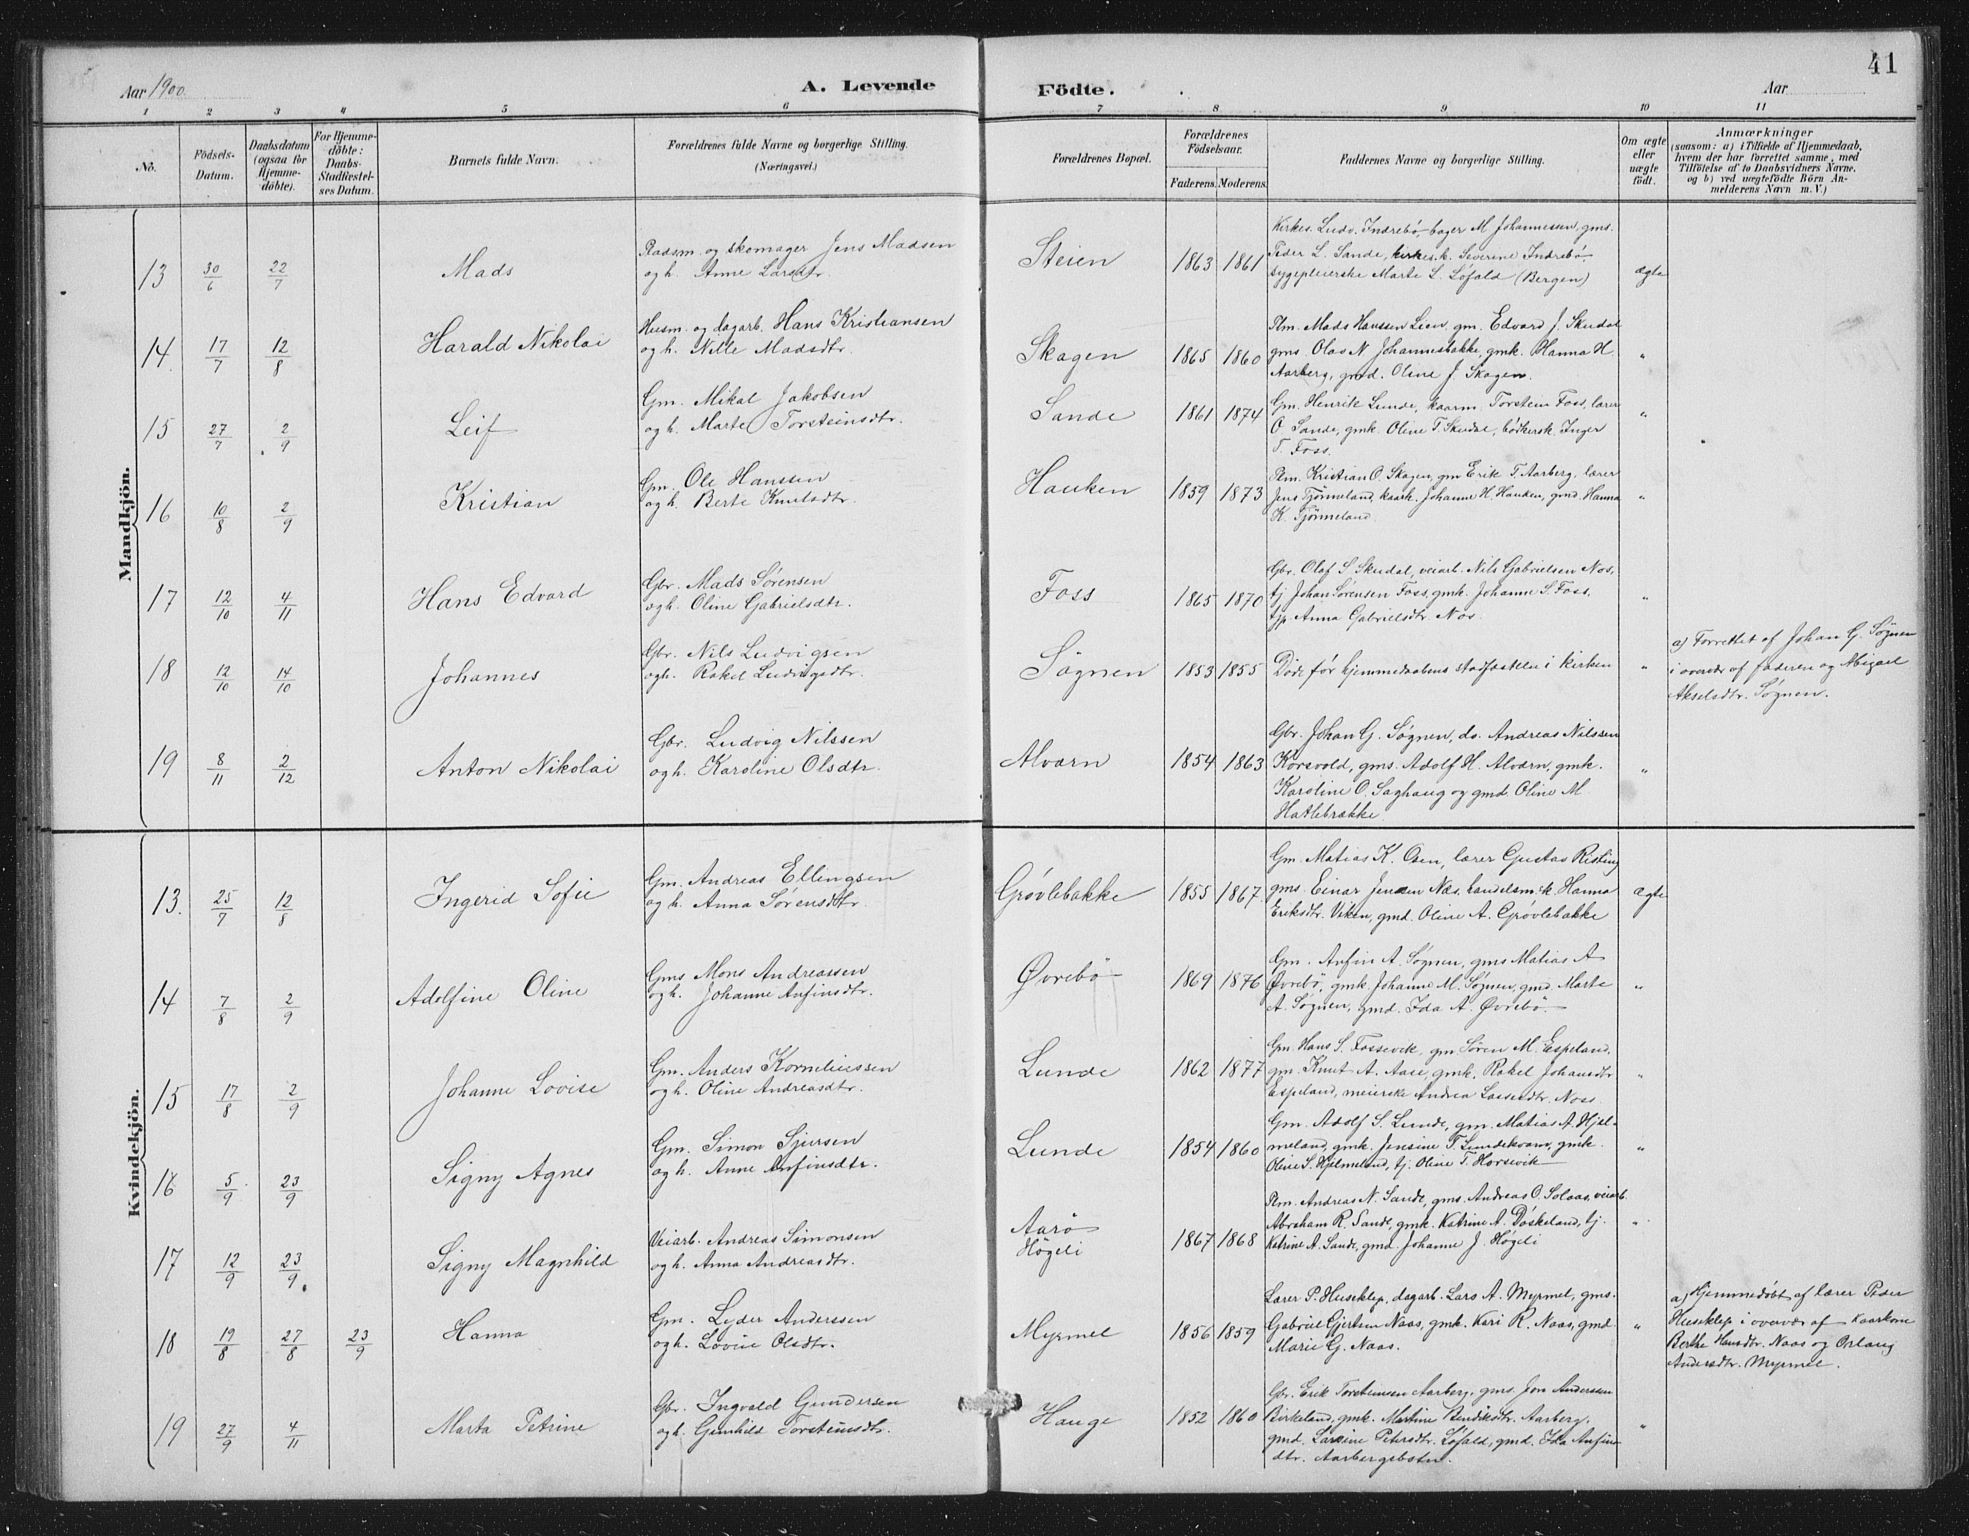 41
Aar 1900. A. Levende Födte. Aar
1 2 3 4 5 6 7 8 9 10 11
No. Födsels-Datum. Daabsdatum (ogsaa for Hjemmedöbte). For Hjemmedöbte: Daabs-Stadfæstelses Datum. Barnets fulde Navn. Forældrenes fulde Navne og borgerlige Stilling. (Næringsvei.) Forældrenes Bopæl. Forældrenes Födselsaar. Faderens. Moderens. Faddernes Navne og borgerlige Stilling. Om ægte eller uægte födt. Anmærkninger (saasom: a) i Tilfælde af Hjemmedaab, hvem der har forrettet samme, med Tilföielse af to Daabsvidners Navne, og b) ved uægtefödte Börn Anmelderens Navn m. V.)
Mandkjön.
13 30/6 22/7 Mads
Pladsm. og skomager Jens Madsen
og h. Anne Larsdtr.
Steien 1863 1861
Kirkes. Ludv. Indrebø, bager M Johannesen, gms.
Peder L. Sande, kirkes.k. Severine Indrebø,
sygepleierske Marte L. Løfald (Bergen)
ægte
14. 17/7 12/8 Harald Nikolai
Husm. og dagarb. Hans Kristiansen
og h. Nille Madsdtr.
Skagen 1865 1860
Plm. Mads Hanssen Lien, gm. Edvard J. Skudal
gms. Olav N. Johannesbakke, gmk. Hanna H.
Aarberg, gmd. Oline J. Skagen.
"
15 27/7 2/9 Leif
Gm. Mikal Jakobsen
og h. Marte Torsteinsdtr.
Sande 1861 1874
Gm. Henrik Lunde, kaarm. Torstein Foss, lærer
O. Sande, gmk. Oline T. Skudal, bødkersk. Inger
T. Foss.
"
16 10/8 2/9 Kristian
Gm. Ole Hanssen
og h. Berte Knutsdtr.
Hauken 1859 1873
Plm. Kristian O. Skagen, gm Erik T. Aarberg, lærer
Jens Tjønneland, kaark. Johanne H. Hauken, gmd. Hanna
K. Tjønneland
"
17 12/10 4/11 Hans Edvard
Gbr. Mads Sørensen
og h. Oline Gabrielsdtr.
Foss 1865 1870
Gbr. Olaf S. Skudal, veiarb. Nils Gabrielsen Nos,
tj. Johan Sørensen Foss, gmk. Johanne S. Foss,
tjp. Anna Gabrielsdtr. Nos.
"
18 12/10 14/10 Johannes
Gbr. Nils Ludvigsen
og h. Rakel Ludvigsdtr.
Søgnen 1853 1855
Døde før hjemmedaabens stadfæstelse i kirken
"
a) Forrettet af Johan G. Søgnen
i overvær af faderen og Abigael
Akselsdtr. Søgnen.
19 8/11 2/12 Anton Nikolai
Gbr. Ludvig Nilssen
og h. Karoline Olsdtr.
Alværn 1854 1863
Gbr. Johan G. Søgnen, do. Andreas Nilssen
Korsvold, gms. Adolf H. Alværn, gmk.
Karoline O. Saghaug og gmd. Oline M.
Hatlebrække
"
Kvindekjön.
13. 25/7 12/8 Ingerid Sofie
Gm. Andreas Ellingsen
og h. Anna Sørensdtr.
Grøvlebakke 1855 1867.
Gm. Matias K. Osen, lærer Gustav Risting
gms. Einar Jensen Næs, handelsm.k. Hanna
Eriksdtr. Viken, gmd. Oline A. Grøvlebakke
ægte
14 7/8 2/9 Adolfine Oline
Gms Mons Andreassen
og h. Johanne Anfinsdtr.
Øvrebø 1869 1876
Gm. Anfin A. Søgnen, gms Matias A
Øvrebø, gmk. Johanne M. Søgnen, gmd. Marte
A. Søgnen, gmd. Ida A. Øvrebø.
"
15 17/8 2/9 Johanne Lovise
Gm. Anders Korneliussen
og h. Oline Andreasdtr.
Lunde 1862 1877
Gm. Hans S. Fossevik, gm Søren M. Espeland,
gm. Knut A. Aase, gmk. Rakel Johansdtr
Espeland, meierske Andrea Lassesdtr. Noss
"
16 5/9 23/9 Signy Agnes
Gm. Simon Sjursen
og h. Anne Anfinsdtr.
Lunde 1854 1860
Gm. Adolf S. Lunde, gm. Matias A. Hjel-
meland, gmk. Jensine T. Lundekvam, gmk.
Oline S. Hjelmeland, tj. Oline T. Horsevik
"
17 12/9 23/9. Signy Magnhild
Veiarb. Andreas Simonsen
og h. Anna Andreasdtr.
Aarø
Høgeli
1867 1868
Plm. Andreas N. Sande, gms. Andreas O. Solaas, veiarb.
Abraham R. Sande, gmk. Katrine A. Døskeland, tj.
Katrine A. Sande, gmd. Johanne J. Høgeli
"
18 19/8 27/8 23/9 Hanna
Gm. Lyder Anderssen
og h. Lovise Olsdtr.
Myrmel 1856 1859
Lærer P. Huseklep, dagarb. Lars A. Myrmel, gms.
Gabriel Gjertsen Naas, gmk. Kari R. Naas, gmd.
Marie G. Naas.
"
a) Hjemmedøbt af lærer Peder
Huseklep i overvær af Kaarkone
Berthe Hansdtr. Naas og Orlaug
Andersdtr. Myrmel.
19 27/9 4/11 Marta Petrine
Gbr. Ingvald Gundersen
og h. Gunhild Torsteinsdtr.
Hauge 1852 1860
Gbr. Erik Torsteinsen Aarberg, gms. Jon Anderssen
Birkeland, gmk. Martine Bendiksdtr. Aarberg,
gmd. Larsine Petersdtr. Løfald, gmd. Ida Anfins-
dtr. Aarbergsbotn.
"